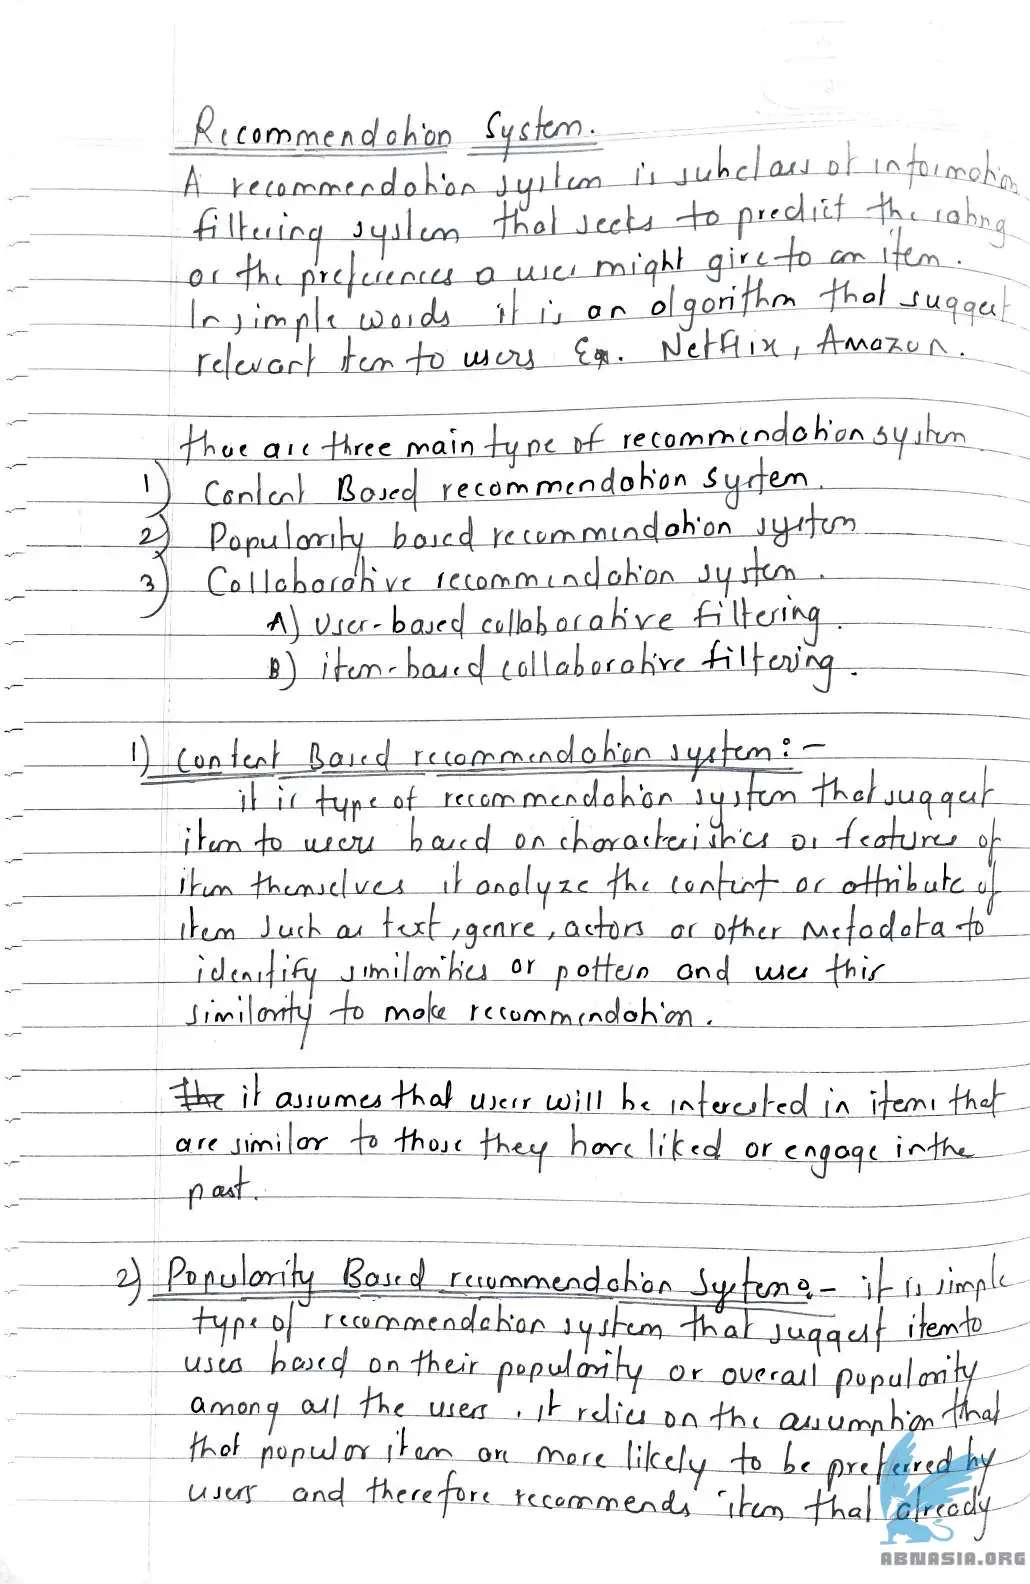 Recommendation System.
A recommendation system is subclass of information
filtering system that seeks to predict the rating
or the preferences a user might give to an item.
In simple words it is an algorithm that suggest
relevant item to users Ex. Netflix, Amazon.
there are three main type of recommendation system
1) Content Based recommendation system.
2) Popularity based recommendation system
3) Collaborative recommendation system.
A) User-based collaborative filtering.
B) item-based collaborative filtering.
1) Content Based recommendation system:-
it is type of recommendation system that suggest
item to users based on characteristics or features of
item themselves it analyze the content or attribute of
item such as text, genre, actors or other metadata to
identify similarities or pattern and uses this
similarity to make recommendation.
the it assumes that users will be interested in items that
are similar to those they have liked or engage in the
past.
2) Popularity Based recommendation System:- it is simple
type of recommendation system that suggest item to
uses based on their popularity or overall popularity
among all the users. it relies on the assumption that
that popular item are more likely to be preferred by
users and therefore recommends item that already
ABNASIA.ORG